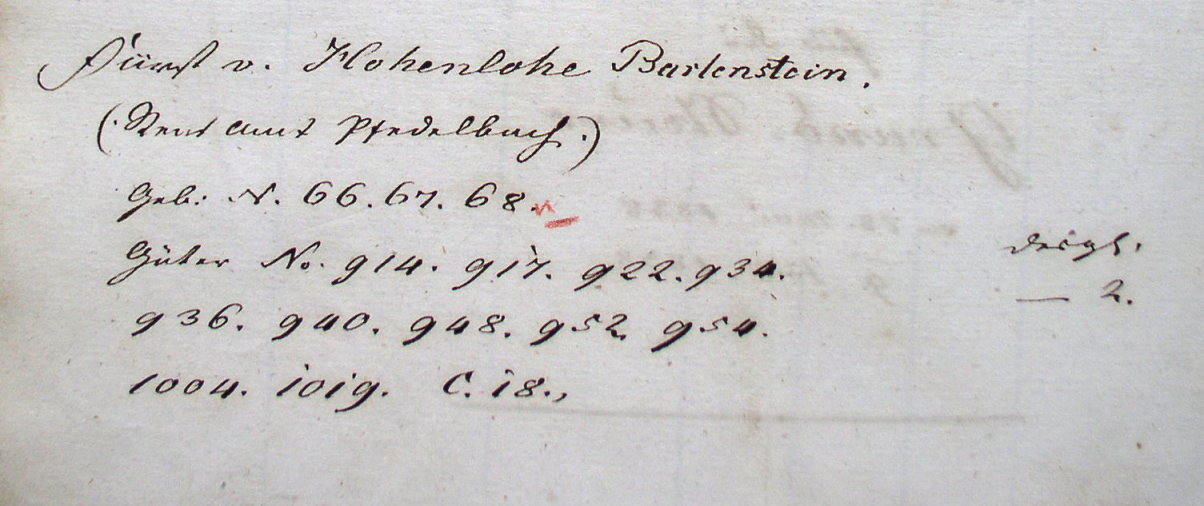 Fürst v. Hohenlohe Bartenstein.
(: Rent amt Pfedelbach :)
Geb: N. 66. 67. 68.
Güter No. 914. 917. 922. 934.
desgl.
— 2.
936. 940. 948. 952. 954.
1004. 1019. C. 18.,